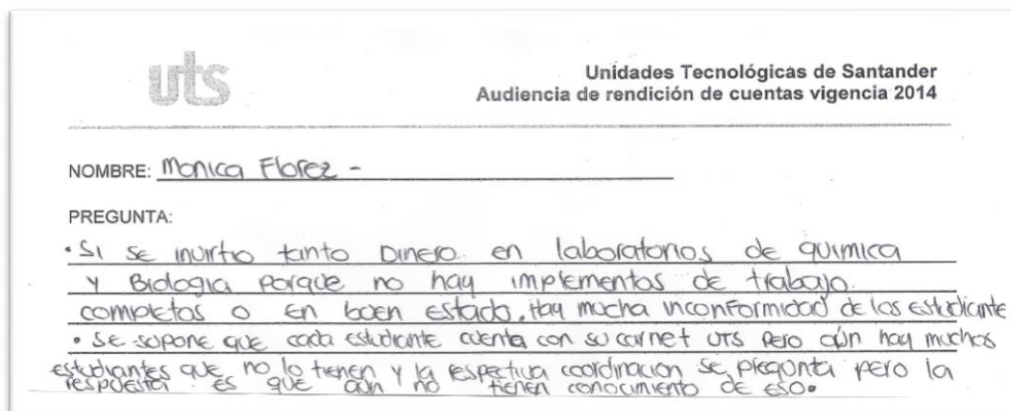 uts
Unidades Tecnológicas de Santander
Audiencia de rendición de cuentas vigencia 2014
NOMBRE: Monica Florez -
PREGUNTA:
• Si se invirtio tanto Dinero en laboratorios de quimica
y Biologia porque no hay implementos de trabajo
completos o en buen estado. Hay mucha inconformidad de los estudiante
• Se supone que cada estudiante cuenta con su carnet UTS pero aún hay muchos
estudiantes que no lo tienen y la respectiva coordinacion se pregunta pero la
respuesta es que aún no tienen conocimiento de eso.